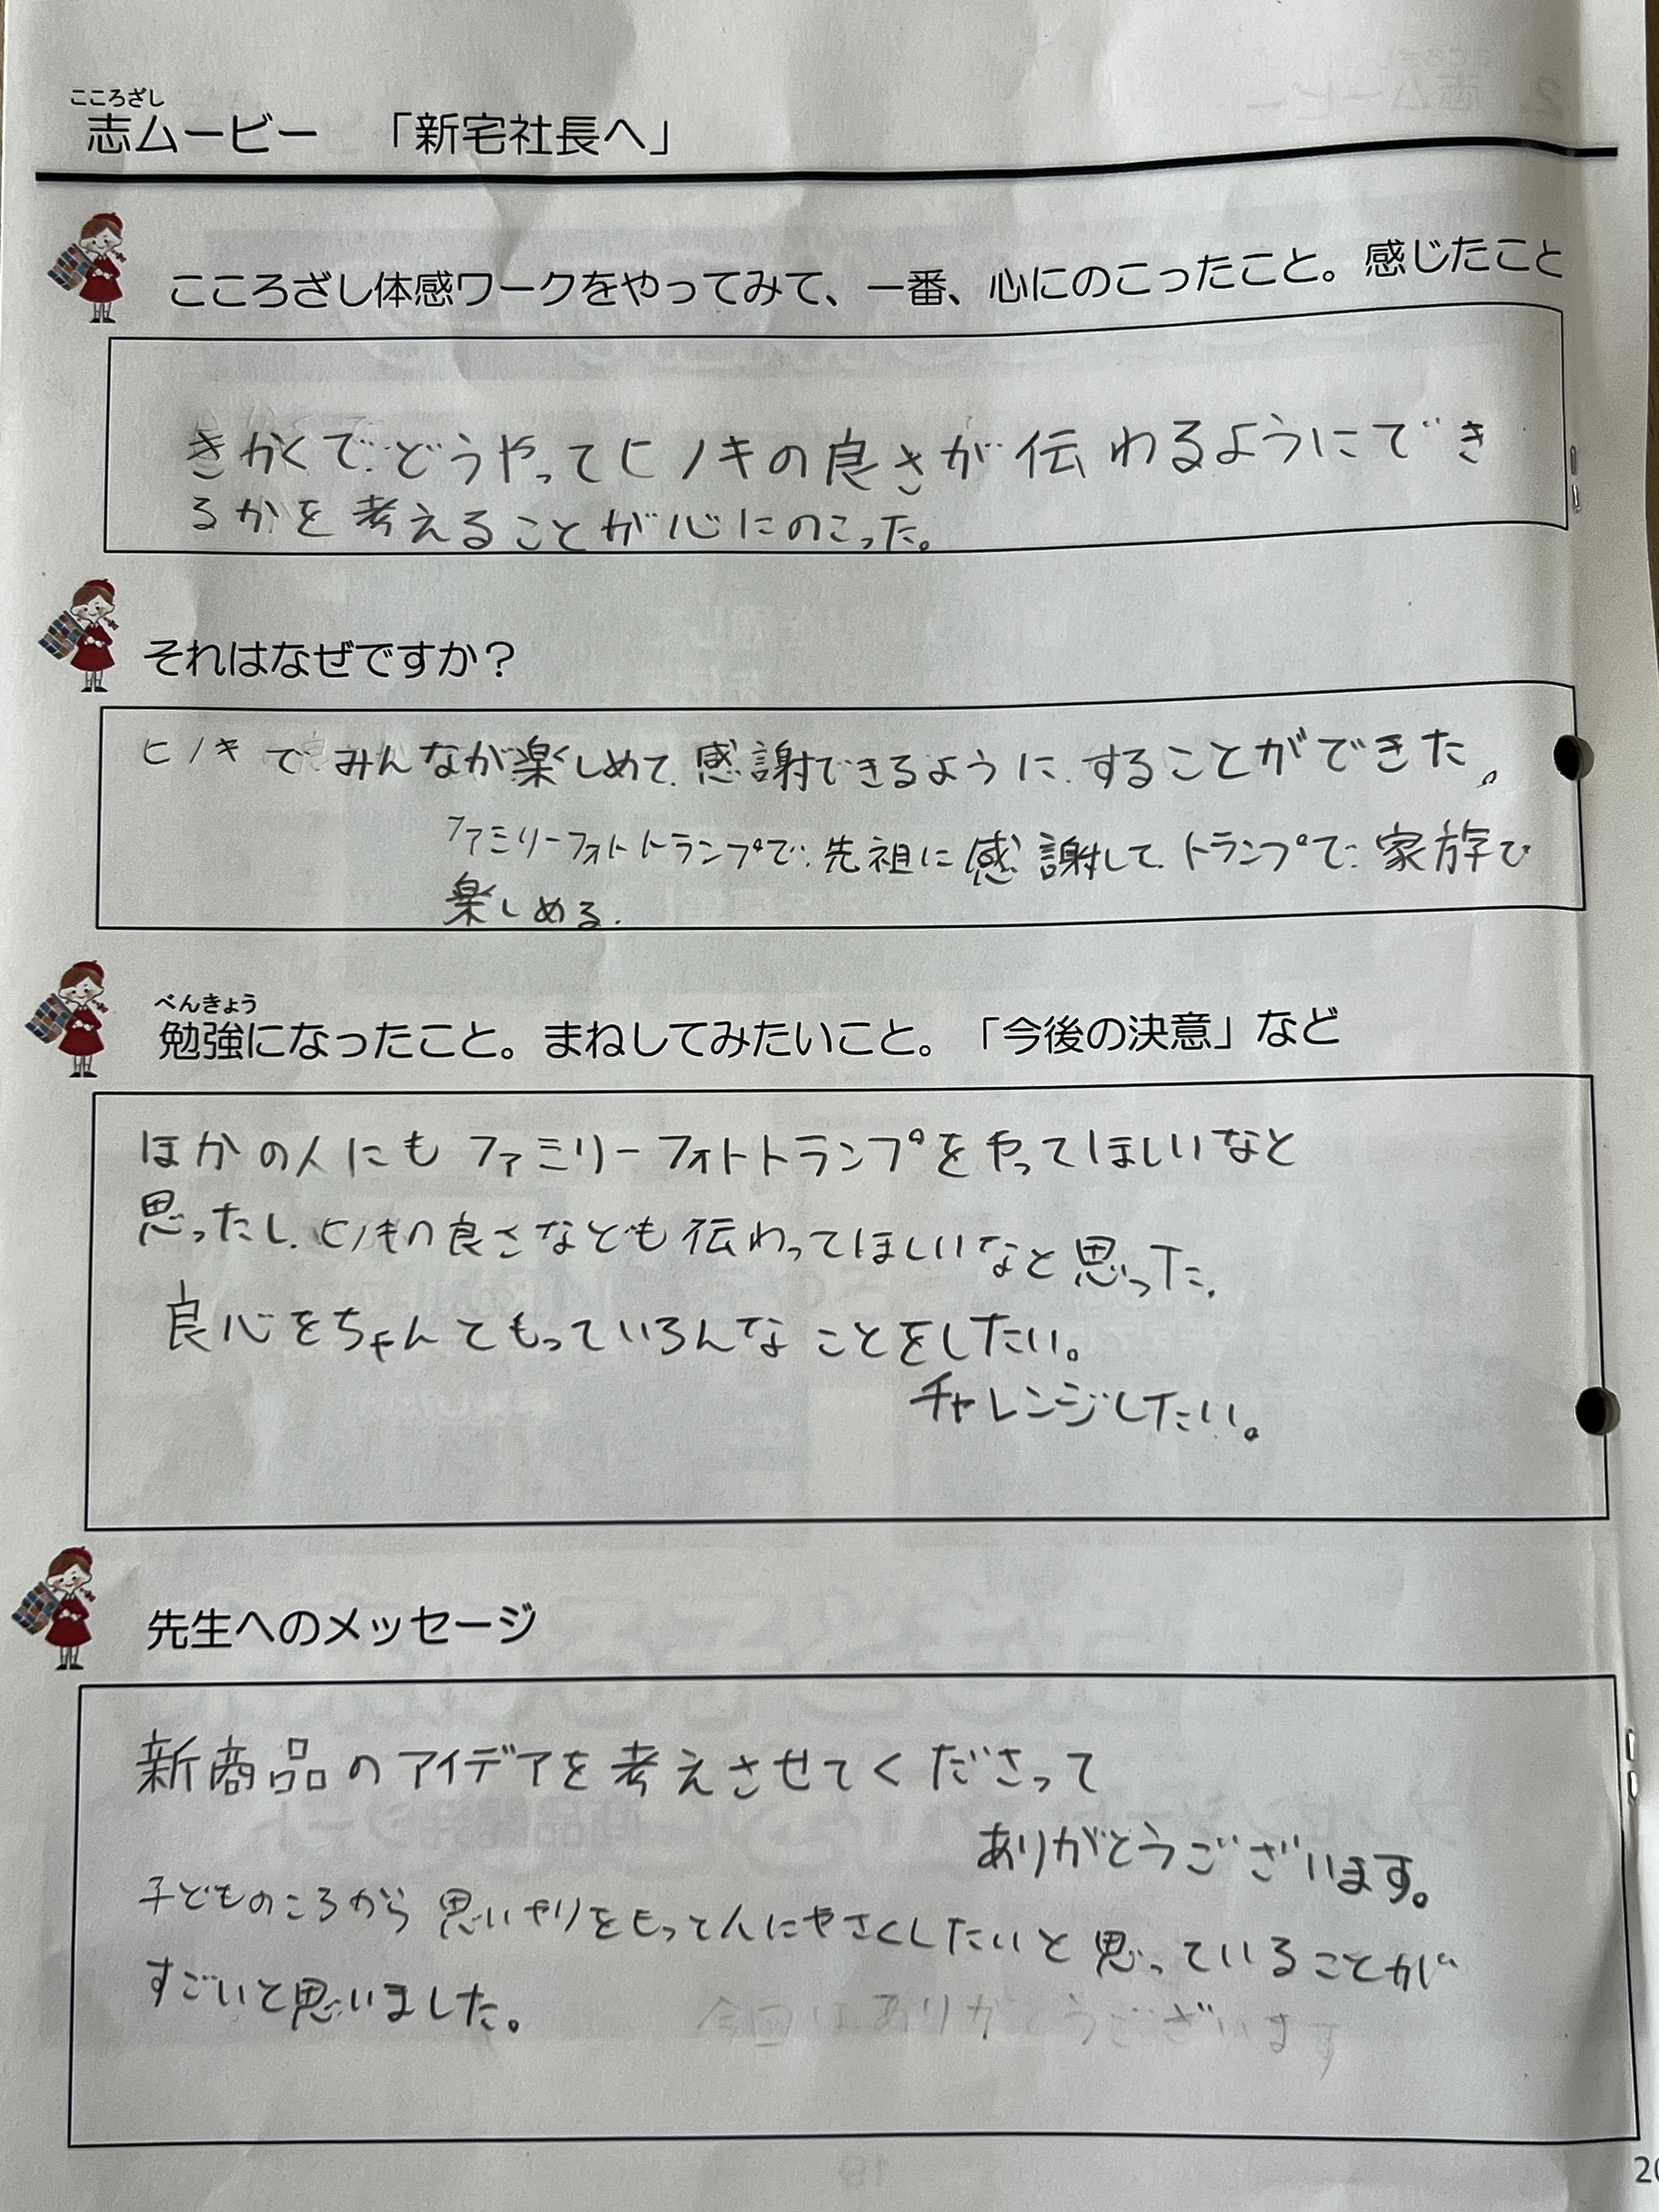 こころざし
志ムービー 「新宅社長へ」
こころざし体感ワークをやってみて、一番、心にのこったこと。感じたこと
きかくで、どうやってヒノキの良さが伝わるようにでき
るかを考えることが心にのこった。
それはなぜですか？
ヒノキでみんなが楽しめて、感謝できるように、することができた。
ファミリーフォトトランプで、先祖に感謝して、トランプで、家族で
楽しめる。
べんきょう
勉強になったこと。まねしてみたいこと。「今後の決意」など
ほかの人にもファミリーフォトトランプをやってほしいなと
思ったし、ヒノキの良さなども伝わってほしいなと思った。
良心をちゃんともっていろんなことをしたい。
チャレンジしたい。
先生へのメッセージ
新商品のアイデアを考えさせてくださって
ありがとうございます。
子どものころから思いやりをもって人にやさくしたいと思っていることが
すごいと思いました。
今回はありがとうございます
20